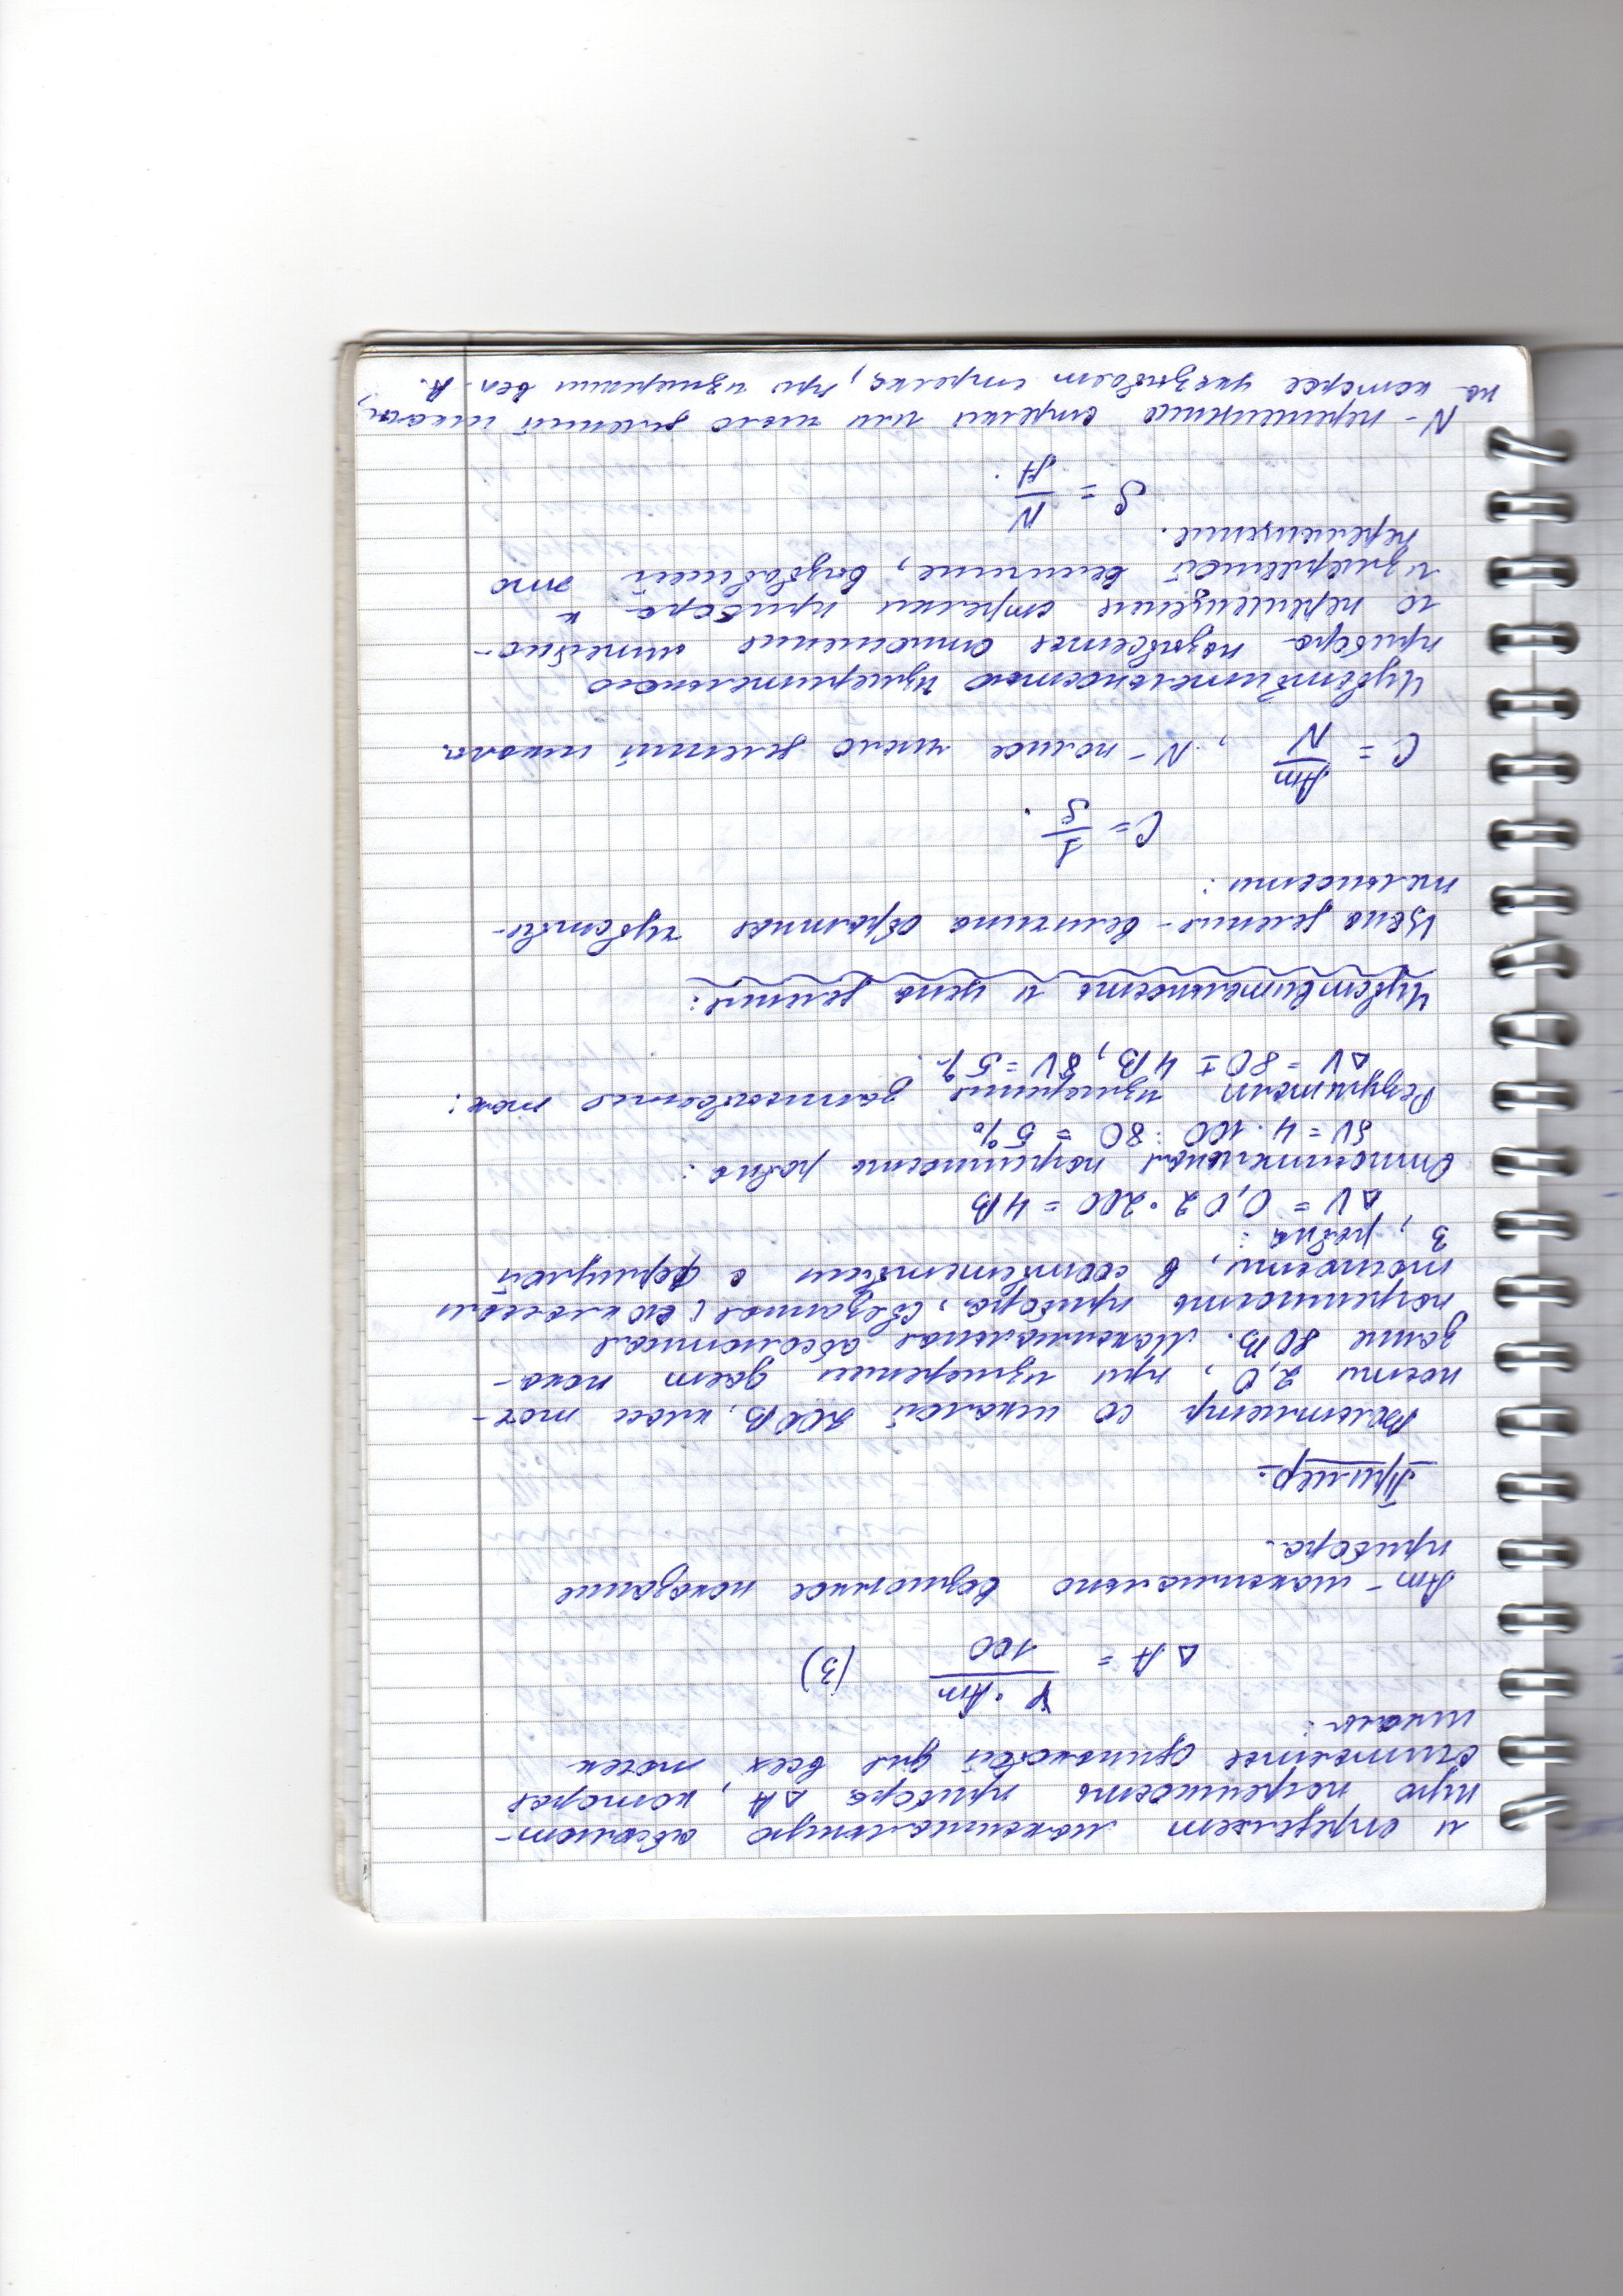 и определяет максимальную абсолют-
ную погрешность прибора ΔA, которая
считается одинаковой для всех точек
шкалы:
ΔA = γ · Am / 100 (3)
Am - максимально возможное показание
прибора.
Пример.
Вольтметр со шкалой 200В, класс точ-
ности 2,0, при измерении дает пока-
зание 80В. Максимальная абсолютная
погрешность прибора, связанная с его классом
точности, в соответствии с формулой
3, равна:
ΔV = 0,02 · 200 = 4В
Относительная погрешность равна:
δV = 4 · 100 : 80 = 5%
Результаты измерения записывается так:
ΔV = 80 ± 4В, δV = 5%.
Чувствительность и цена деления:
Цена деления - величина обратная чувстви-
тельности:
C = 1 / S.
C = Am / N, N - полное число делений шкалы
Чувствительностью измерительного
прибора называется отношение линейно-
го перемещения стрелки прибора к
измеряемой величине, вызвавшей это
перемещение.
S = N / A.
N - перемещение стрелки или число делений шкалы,
на которое указывает стрелка, при измерении вел. A.